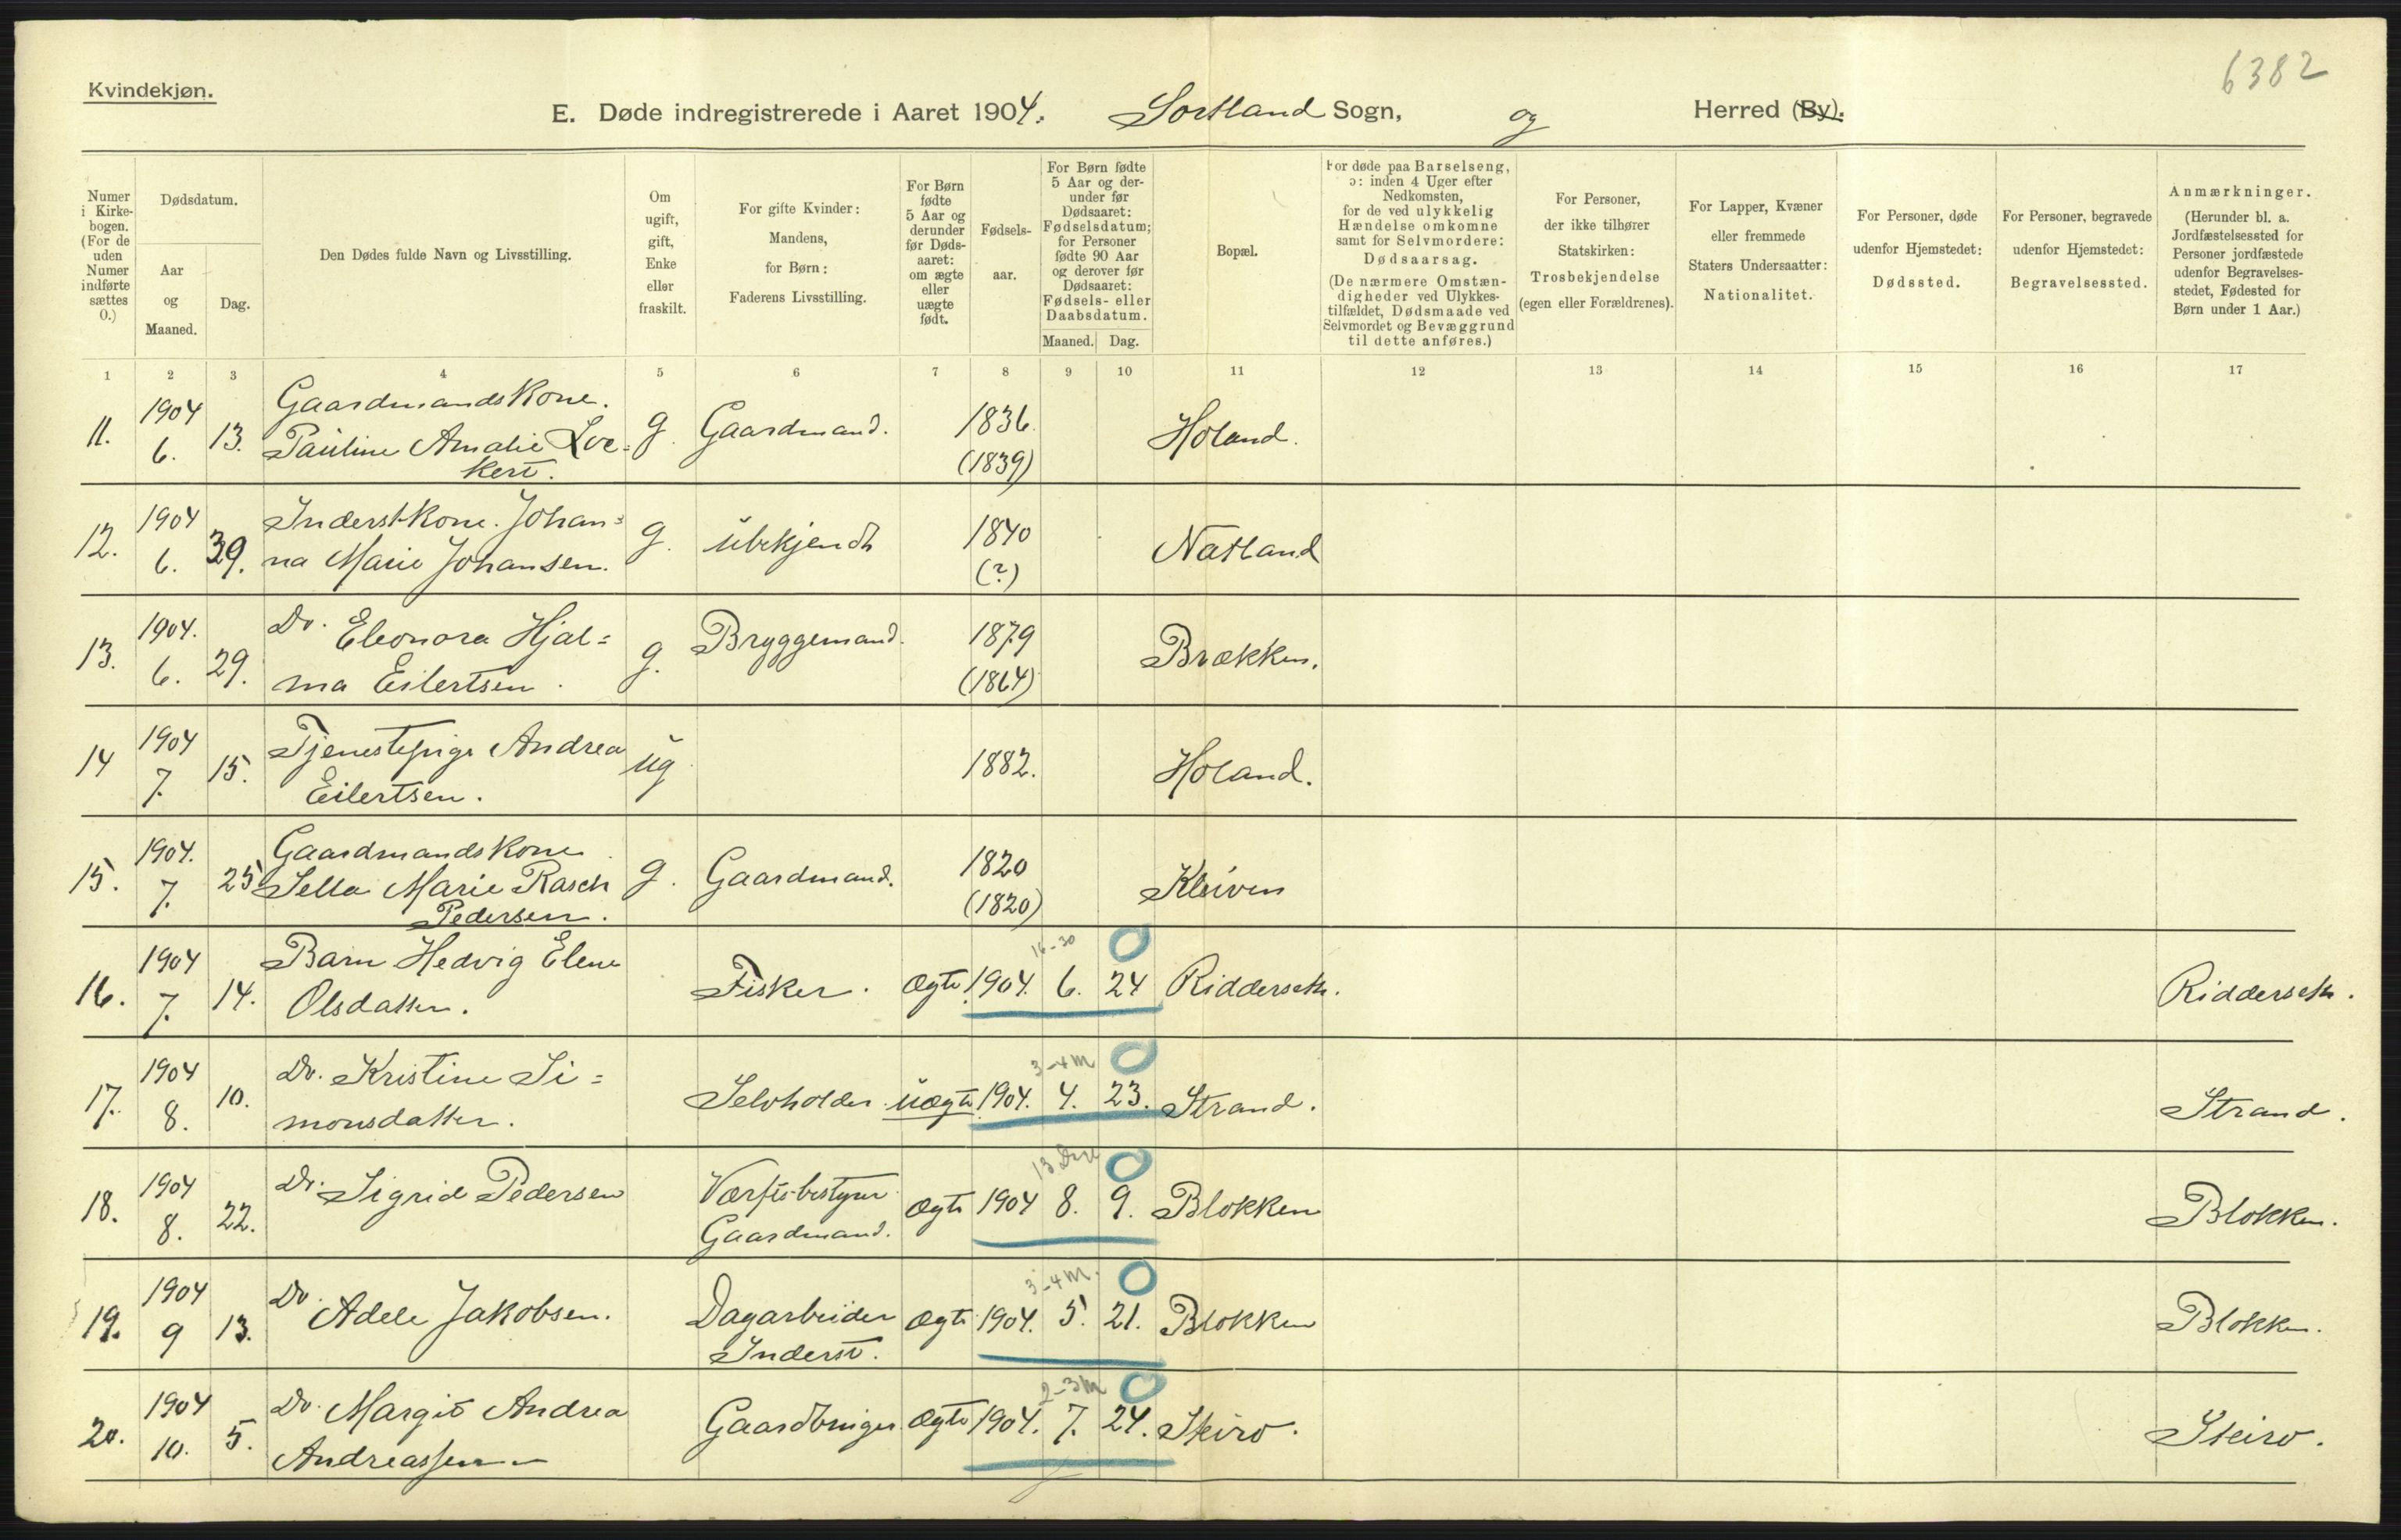 6382
Kvindekjøn.
E. Døde indregistrerede i Aaret 1904. Sortland Sogn, og Herred (By).
Numer i Kirkebogen. (For de uden Numer indførte sættes 0.)
Dødsdatum.
Aar og Maaned.
Dag.
Den Dødes fulde Navn og Livsstilling.
Om ugift, gift, Enke eller fraskilt.
For gifte Kvinder: Mandens, for Børn: Faderens Livsstilling.
For Børn fødte 5 Aar og derunder før Dødsaaret: om ægte eller uægte født.
Fødselsaar.
For Børn fødte 5 Aar og derunder før Dødsaaret: Fødselsdatum; for Personer fødte 90 Aar og derover før Dødsaaret: Fødsels- eller Daabsdatum.
Maaned. Dag.
Bopæl.
For døde paa Barselseng, ɔ: inden 4 Uger efter Nedkomsten, for de ved ulykkelig Hændelse omkomne samt for Selvmordere: Dødsaarsag. (De nærmere Omstændigheder ved Ulykkestilfældet, Dødsmaade ved Selvmordet og Bevæggrund til dette anføres.)
For Personer, der ikke tilhører Statskirken: Trosbekjendelse (egen eller Forældrenes).
For Lapper, Kvæner eller fremmede Staters Undersaatter: Nationalitet.
For Personer, døde udenfor Hjemstedet: Dødssted.
For Personer, begravede udenfor Hjemstedet: Begravelsessted.
Anmærkninger. (Herunder bl. a. Jordfæstelsessted for Personer jordfæstede udenfor Begravelsesstedet, Fødested for Børn under 1 Aar.)
1 2 3 4 5 6 7 8 9 10 11 12 13 14 15 16 17
11. 1904 6. 13. Gaardmandskone. Pauline Amalie Lockert. g. Gaardmand. 1836. (1839) Holand.
12. 1904 6. 29. Inderstkone. Johanna Marie Johansen. g. Ubekjendt 1840 (?) Natland
13. 1904. 6. 29. Do. Eleonora Hjalma Eilertsen. g. Bryggemand. 1879 (1864) Brækken.
14 1904 7. 15. Tjenestepige Andrea Eilertsen. ug 1882. Holand.
15. 1904. 7. 25. Gaardmandskone Sella Marie Rasch Pedersen. g. Gaardmand. 1820 (1820) Kleiven
16. 1904 7. 14. Barn Hedvig Elene Olsdatter. Fisker. ægte 1904. 16-30 6. 24 Ridderseth. Ridderseth.
17. 1904 8. 10. Do. Kristine Simonsdatter. Selvholder. uægte 1904. 3-4 m 4. 23. Strand. Strand.
18. 1904 8. 22. Do. Sigrid Pedersen Værftsbestyrer Gaardmand. ægte 1904 8. 9. Blokken Blokken.
19. 1904 9 13. Do. Adele Jakobsen. Dagarbeider Inderst. ægte 1904. 3-4 m. 5. 21. Blokken Blokken.
20. 1904 10. 5. Do. Margit Andrea Andreassen Gaardbruger. ægte 1904. 2-3 m 7. 24. Steiro. Steiro.